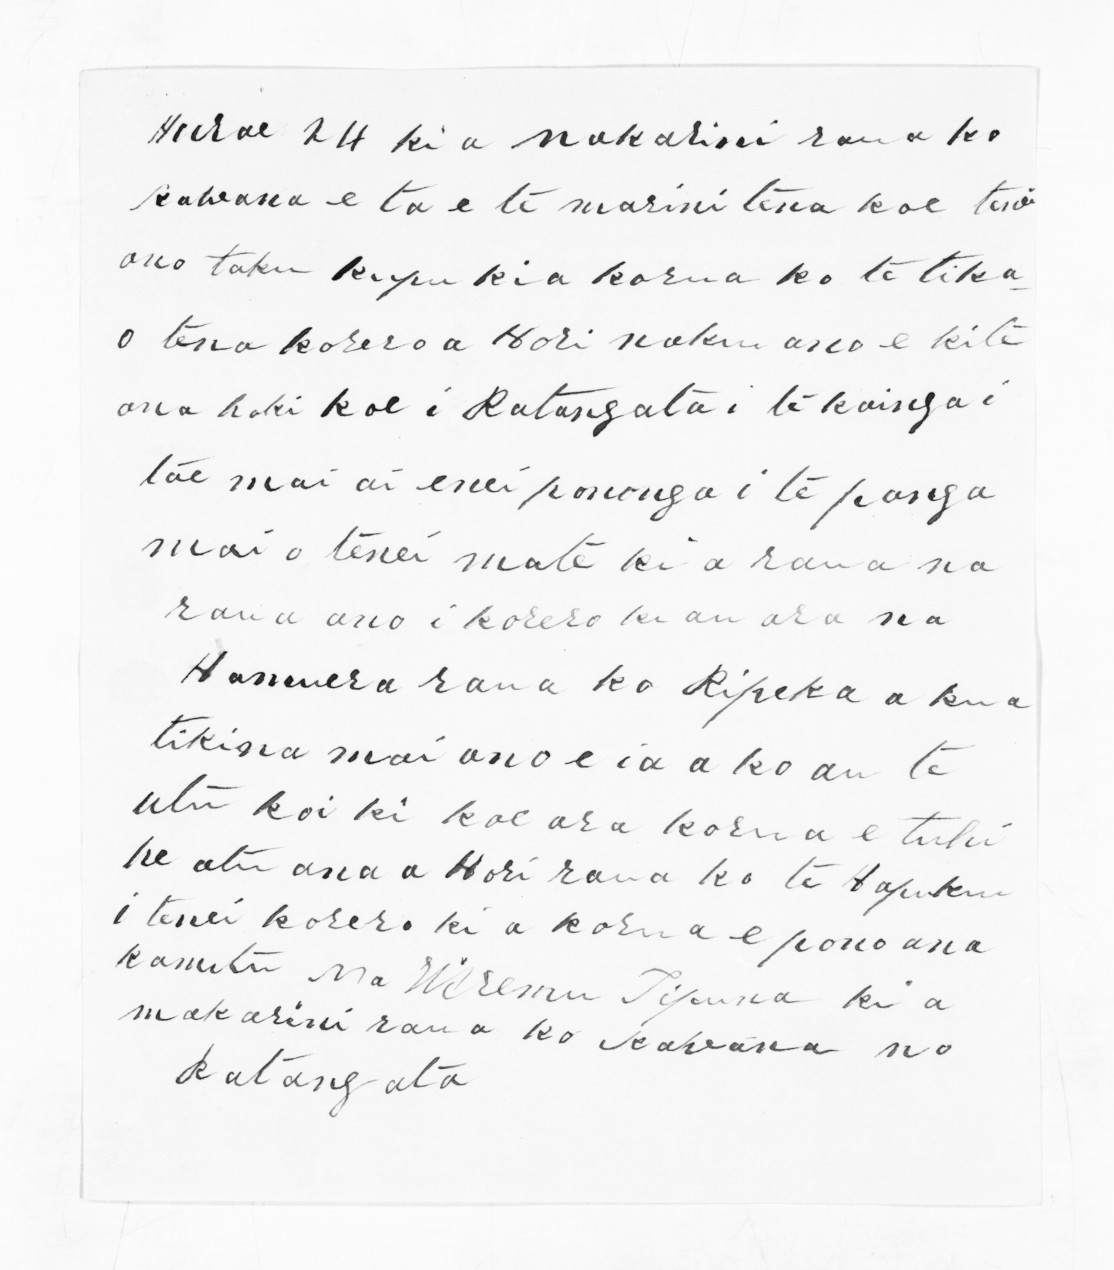 Hurae 24 ki a makarini raua ko
kawana e ta e te marini tena koe tenei
ano taku kupu ki a korua ko te tika
o tena korero a Hori naku ano e kite
ana hoki koe i Ratangata i te kainga i
tae mai ai enei pononga i te panga
mai o tenei mate ki a raua na
raua ano i korero ki au ara na
Hamuera raua ko Ripeka a kua
tikina mai ano e ia a ko au te
utu koi ki koe ara korua e tuhi
he atu ana a Hori raua ko te Hapuku
i tenei korero ki a korua e pono ana
kamutu Na Wiremu Tipuna ki a
makarini raua ko kawana no
Ratangata